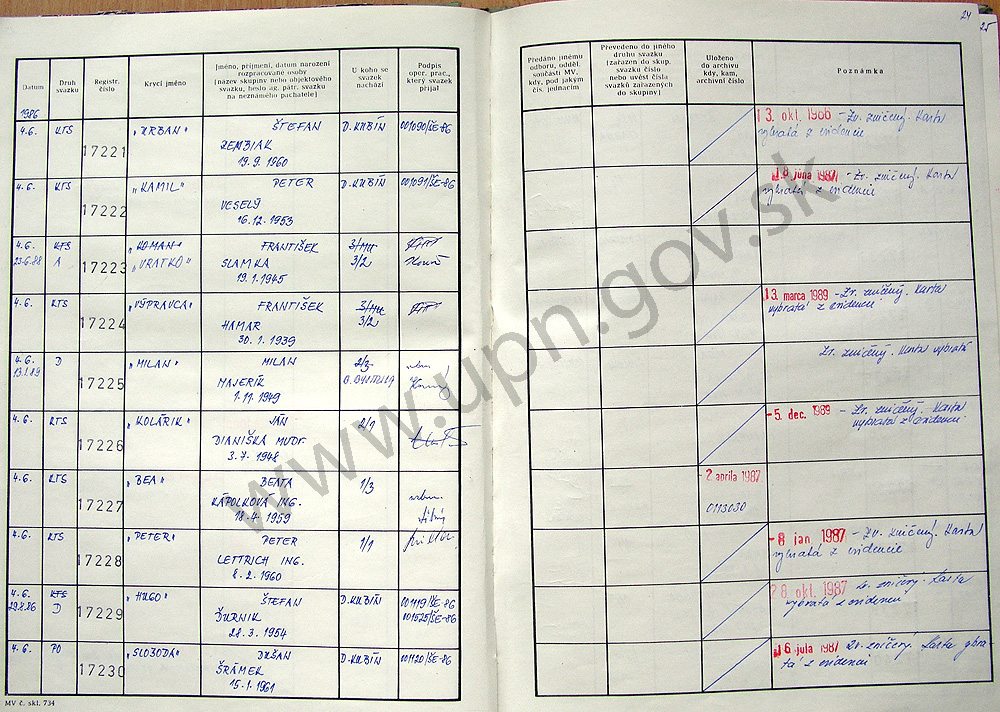 24
25
Datum
Druh
svazku
Registr.
číslo
Krycí jméno
Jméno, příjmení, datum narození
rozpracované osoby
[název skupiny nebo objektového
svazku, heslo ag. pátr. svazku
na neznámého pachatele]
U koho se
svazek
nachází
Podpis
oper. prac.,
který svazek
přijal
Předáno jinému
odboru, odděl.
součásti MV,
kdy, pod jakým
čís. jednacím
Převedeno do jiného
druhu svazku
[zařazen do skup.
svazku číslo
nebo uvést čísla
svazků zařazených
do skupiny]
Uloženo
do archivu
kdy, kam,
archivní číslo
Poznámka
1986
4.6. KTS 17221 „URBAN" ŠTEFAN D. KUBÍN 001090/ŠE-86
ZEMBIAK
19. 9. 1960
13. okt. 1986 - Zv. zničený. Karta
vybratá z evidencie
4.6. KTS 17222 „KAMIL" PETER D. KUBÍN 001091/ŠE-86
VESELÝ
16. 12. 1953
8 júna 1987 - Zv. zničený. Karta
vybratá z evidencie
4.6. KTS 17223 „ROMAN" FRANTIŠEK
23.6.88 A „VRATKO" SLAMKA 3/2
19. 1. 1945
4.6. KTS 17224 „VÝPRAVCA" FRANTIŠEK
HAMAR 3/2
30. 1. 1939
13. marca 1989 - Zv. zničený. Karta
vybratá z evidencie
4.6. D 17225 „MILAN" MILAN 2/3
13.1.89 MAJERÍK
1. 11. 1949
Zv. zničený. Karta vybratá
4.6. KTS 17226 „KOLÁRIK" JÁN 2/1
DIANIŠKA MUDr.
3. 7. 1948
-5. dec. 1989 - Zv. zničený. Karta
vybratá z evidencie
4.6. KTS 17227 „BEA" BEATA 1/3
KÁPOLKOVÁ ING.
18. 4. 1959
- 2 apríla 1987
0113030
4.6. KTS 17228 „PETER" PETER 1/1
LETTRICH ING.
8. 2. 1960
-8 jan 1987 - Zv. zničený. Karta
vybratá z evidencie
4.6. KTS 17229 „HUGO" ŠTEFAN D. KUBÍN 001119/ŠE-86
29.8.86 D ĎURNIK 001525/ŠE-86
28. 3. 1954
28. okt. 1987 Zv. zničený. Karta
vybratá z evidencie
4.6. PO 17230 „SLOBODA" DUŠAN D. KUBÍN 001120/ŠE-86
ŠRÁMEK
15. 1. 1961
16 júla 1987 Zv. zničený. Karta vybra-
tá z evidencie
MV č. skl. 734
www.upn.gov.sk